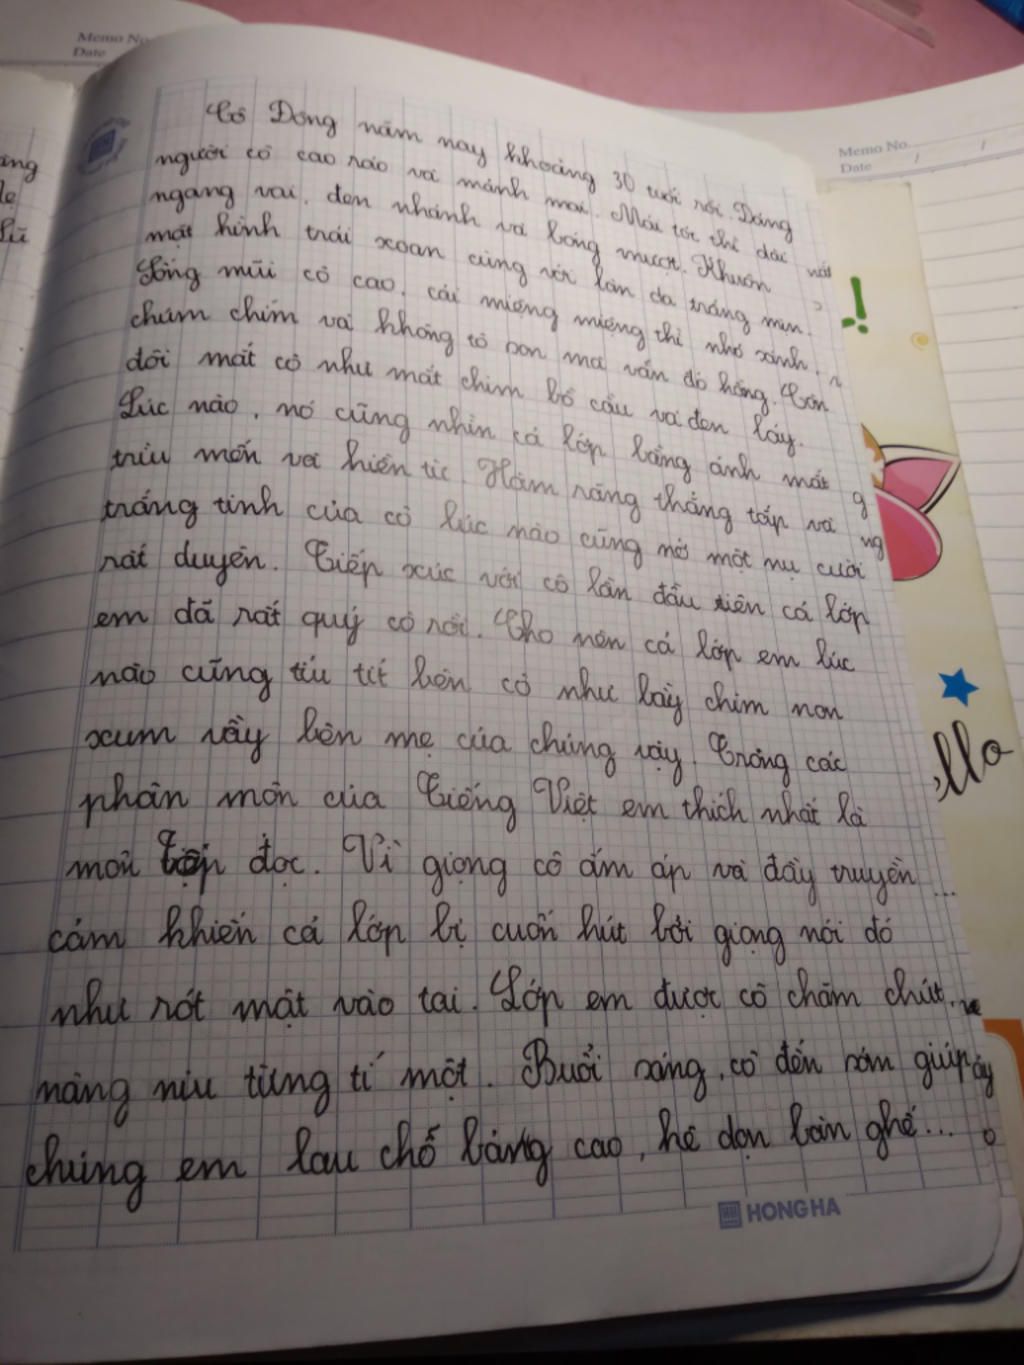 Memo No.
Date
Memo No.
Date / /
Cô Đông năm nay khoảng 30 tuổi rồi. Dáng
người cô cao ráo và mảnh mai. Mái tóc thì dài
ngang vai, đen nhánh và bóng mượt. Khuôn
mặt hình trái xoan cùng với làn da trắng mịn.
Sống mũi cô cao, cái miệng miệng thì nhỏ xinh,
chúm chím và không tô son mà vẫn đỏ hồng. Còn
đôi mắt cô như mắt chim bồ câu và đen láy.
Lúc nào, nó cũng nhìn cả lớp bằng ánh mắt
trìu mến và hiền từ. Hàm răng thẳng tắp và
trắng tinh của cô lúc nào cũng nở một nụ cười
rất duyên. Tiếp xúc với cô lần đầu tiên cả lớp
em đã rất quý cô rồi. Cho nên cả lớp em lúc
nào cũng tíu tít bên cô như bầy chim non
xum vầy bên mẹ của chúng vậy. Trong các
phân môn của Tiếng Việt em thích nhất là
môn Tập đọc. Vì giọng cô ấm áp và đầy truyền
cảm khiến cả lớp bị cuốn hút bởi giọng nói đó
như rót mật vào tai. Lớp em được cô chăm chút,
nâng niu từng tí một. Buổi sáng, cô đến sớm giúp
chúng em lau chỗ bảng cao, kê dọn bàn ghế...
HONG HA
llo